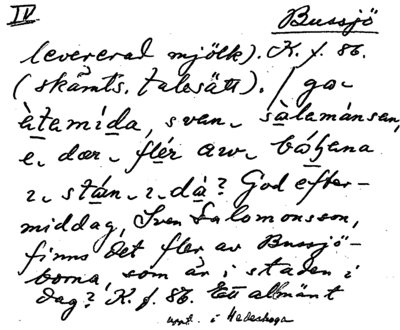 IV
Bussjö
levererad mjölk). K. f. 86.
(skämts. talesätt). / ga-
àtamída, sven sàlamánsen,
e dær flér aw báʃana
ɪ stán ɪ dà? God efter-
middag, Sven Salomonsson,
finns det fler av Bussjö-
borna, som är i staden i
dag? K. f. 86. Ett allmänt
uppt. i